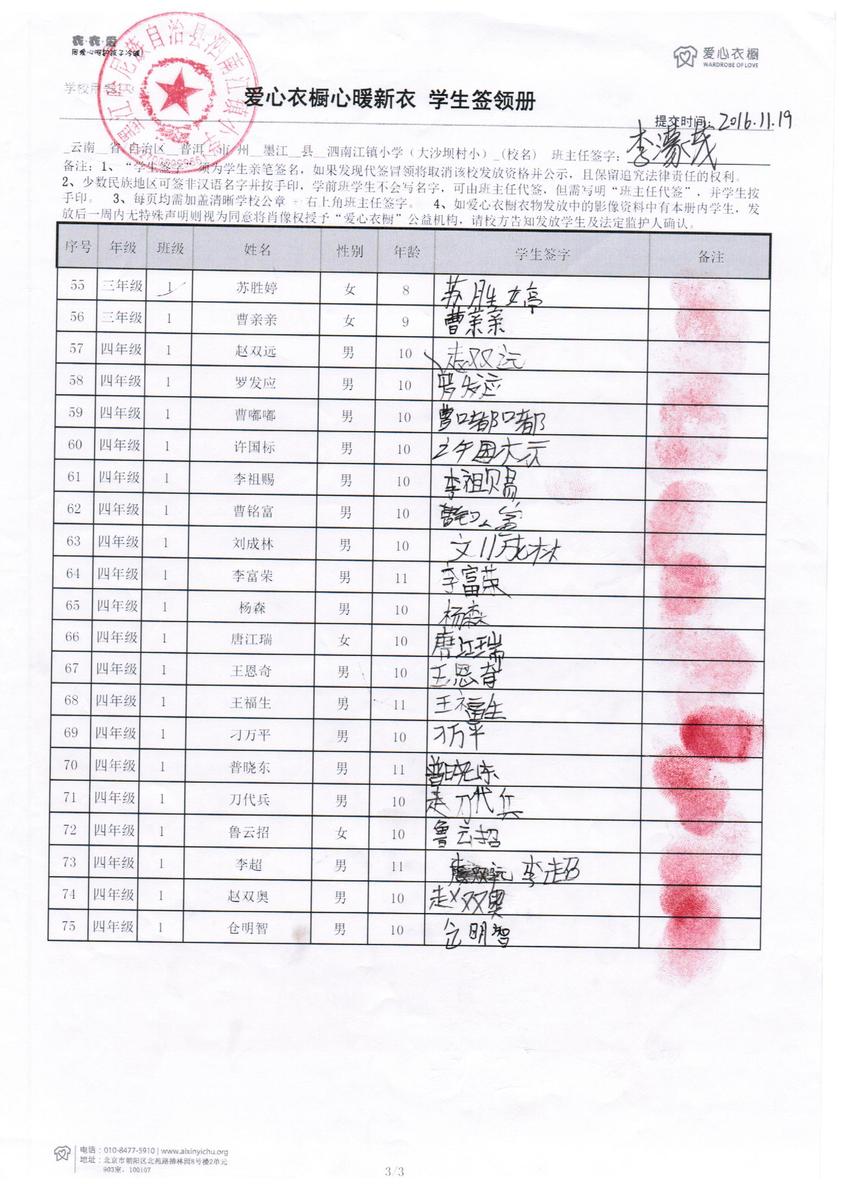 衣·衣·爱
用爱心暖和孩子冷暖
爱心衣橱
WARDROBE OF LOVE
学校用章
江哈尼族自治县泗南江镇小学
爱心衣橱心暖新衣 学生签领册
提交时间: 2016.11.19
云南 省 自治区 普洱 市 州 墨江 县 泗南江镇小学（大沙坝村小）(校名) 班主任签字: 李濛茂
备注: 1、“学生签字”须为学生亲笔签名, 如果发现代签冒领将取消该校发放资格并公示, 且保留追究法律责任的权利。
2、少数民族地区可签非汉语名字并按手印, 学前班学生不会写名字, 可由班主任代签, 但需写明“班主任代签”, 并学生按
手印。 3、每页均需加盖清晰学校公章 + 右上角班主任签字。 4、如爱心衣橱衣物发放中的影像资料中有本册内学生, 发
放后一周内无特殊声明则视为同意将肖像权授予“爱心衣橱”公益机构, 请校方告知发放学生及法定监护人确认。
序号 年级 班级 姓名 性别 年龄 学生签字 备注
55 三年级 1 苏胜婷 女 8 苏胜婷
56 三年级 1 曹亲亲 女 9 曹亲亲
57 四年级 1 赵双远 男 10 赵双远
58 四年级 1 罗发应 男 10 罗发应
59 四年级 1 曹嘟嘟 男 10 曹嘟嘟
60 四年级 1 许国标 男 10 许国标
61 四年级 1 李祖赐 男 10 李祖赐
62 四年级 1 曹铭富 男 10
63 四年级 1 刘成林 男 10 刘成林
64 四年级 1 李富荣 男 11 李富荣
65 四年级 1 杨森 男 10 杨森
66 四年级 1 唐江瑞 女 10 唐江瑞
67 四年级 1 王恩奇 男 10 王恩奇
68 四年级 1 王福生 男 11 王福生
69 四年级 1 刁万平 男 10 刁万平
70 四年级 1 普晓东 男 11 普晓东
71 四年级 1 刀代兵 男 10 赵刀代兵
72 四年级 1 鲁云招 女 10 鲁云招
73 四年级 1 李超 男 11 李超
74 四年级 1 赵双奥 男 10 赵双奥
75 四年级 1 仓明智 男 10 仓明智
电话: 010-8477-5910 | www.aixinyichu.org
地址: 北京市朝阳区北苑路捕林园8号楼2单元
903室, 100107
3/3